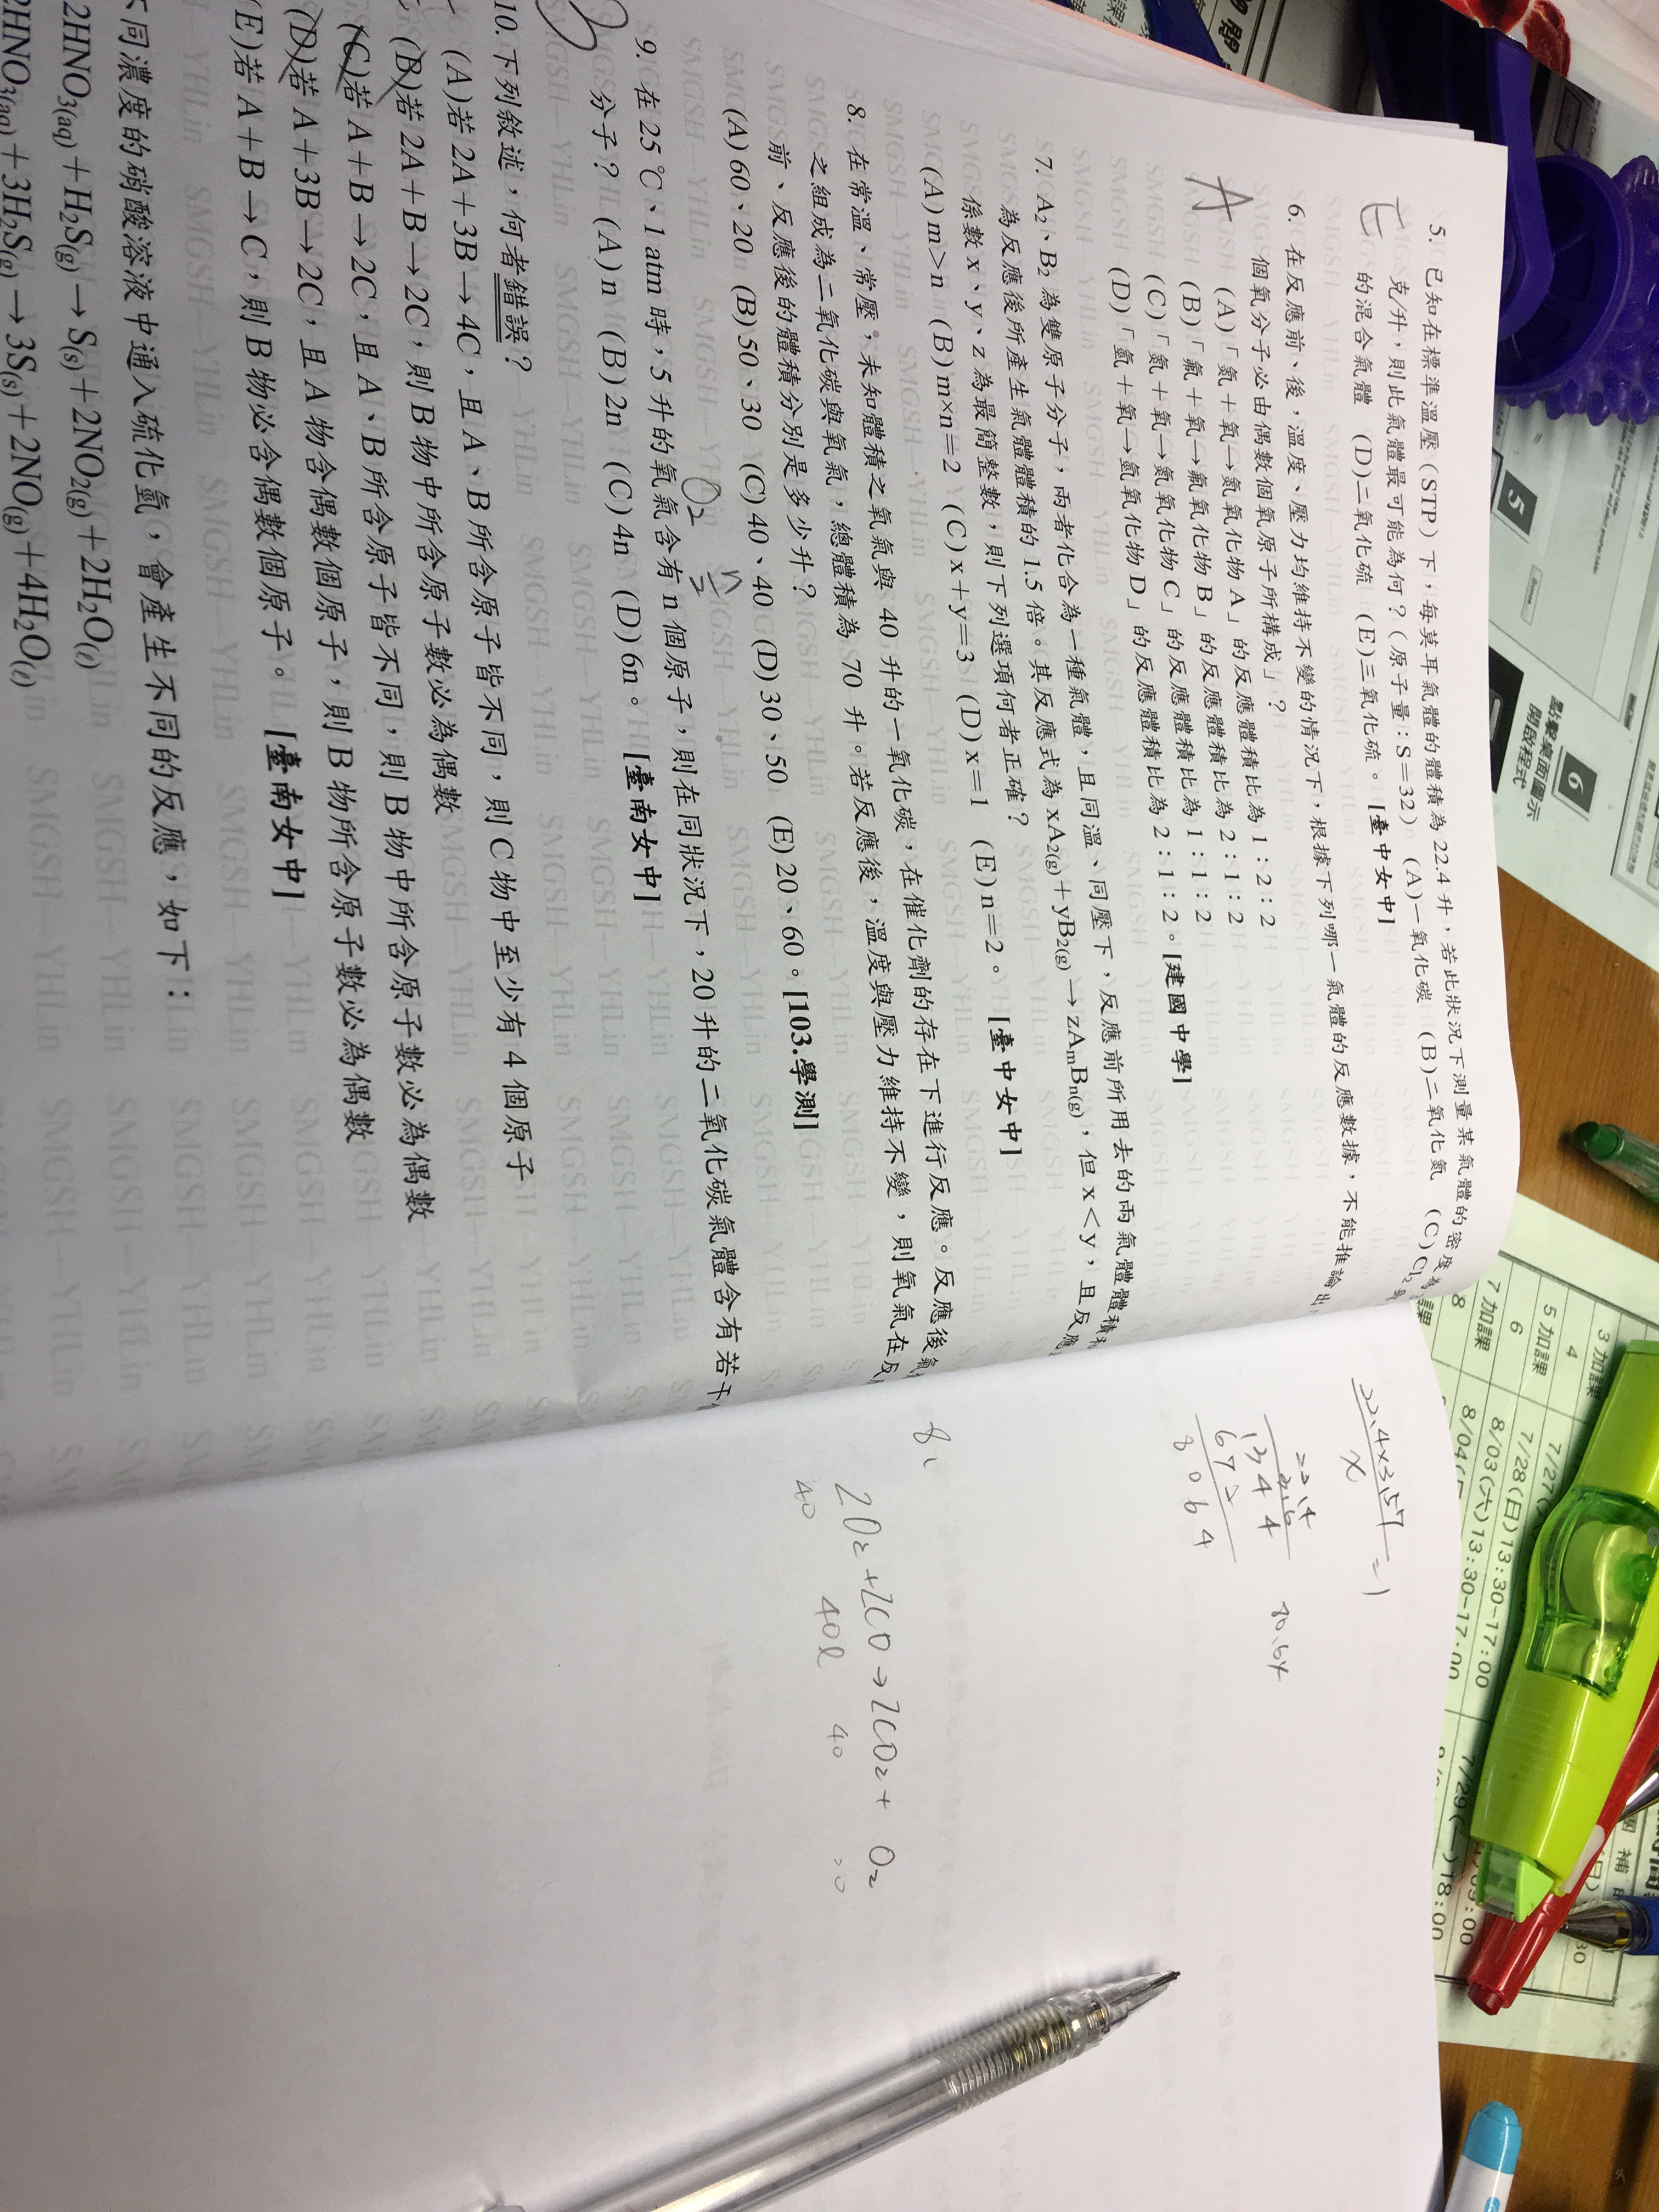 5. 已知在標準溫壓(STP)下,每莫耳氣體的體積為 22.4 升,若此狀況下測量某氣體的密度為
克/升,則此氣體最可能為何?(原子量:S=32) (A)一氧化碳 (B)二氧化氮 (C) Cl₂與
的混合氣體 (D)二氧化硫 (E)三氧化硫。[臺中女中]
6. 在反應前、後,溫度、壓力均維持不變的情況下,根據下列哪一氣體的反應數據,不能推論出
A
個氧分子必由偶數個氧原子所構成」?
(A)「氮+氧→氮氧化物 A」的反應體積比為 1:2:2
(B)「氟+氧→氟氧化物 B」的反應體積比為 2:1:2
(C)「氮+氧→氮氧化物 C」的反應體積比為 1:1:2
(D)「氫+氧→氫氧化物 D」的反應體積比為 2:1:2。[建國中學]
7. A₂、B₂為雙原子分子,兩者化合為一種氣體,且同溫、同壓下,反應前所用去的兩氣體體積
為反應後所產生氣體體積的 1.5 倍。其反應式為 xA₂(g)+yB₂(g)→zAmBn(g),但 x<y,且反應
係數 x、y、z 為最簡整數,則下列選項何者正確?
(A) m>n (B) m×n=2 (C) x+y=3 (D) x=1 (E) n=2。[臺中女中]
8. 在常溫、常壓,未知體積之氧氣與 40 升的一氧化碳,在催化劑的存在下進行反應。反應後氣
之組成為二氧化碳與氧氣,總體積為 70 升。若反應後,溫度與壓力維持不變,則氧氣在反
前、反應後的體積分別是多少升?
(A) 60、20 (B) 50、30 (C) 40、40 (D) 30、50 (E) 20、60。[103.學測]
O₂ n/2
9. 在 25℃、1 atm 時,5 升的氧氣含有 n 個原子,則在同狀況下,20 升的二氧化碳氣體含有若干
分子? (A) n (B) 2n (C) 4n (D) 6n。[臺南女中]
10. 下列敘述,何者錯誤?
(A)若 2A+3B→4C,且 A、B 所含原子皆不同,則 C 物中至少有 4 個原子
(B)若 2A+B→2C,則 B 物中所含原子數必為偶數
(C)若 A+B→2C,且 A、B 所含原子皆不同,則 B 物中所含原子數必為偶數
(D)若 A+3B→2C,且 A 物含偶數個原子,則 B 物所含原子數必為偶數
(E)若 A+B→C,則 B 物必含偶數個原子。[臺南女中]
不同濃度的硝酸溶液中通入硫化氫,會產生不同的反應,如下:
2HNO₃(aq)+H₂S(g)→S(s)+2NO₂(g)+2H₂O(ℓ)
2HNO₃(aq)+3H₂S(g)→3S(s)+2NO(g)+4H₂O(ℓ)
22.4×3.57
x
=1
22.4
3.6
1344
672
8064
80.64
8、
2O₂+2CO→2CO₂+ O₂
40 40ℓ 40
6
點擊桌面圖示
開啟程式
5
3 加課
4
5 加課
6
7 加課
8
7/28(日)13:30-17:00
8/03(六)13:30-17:00